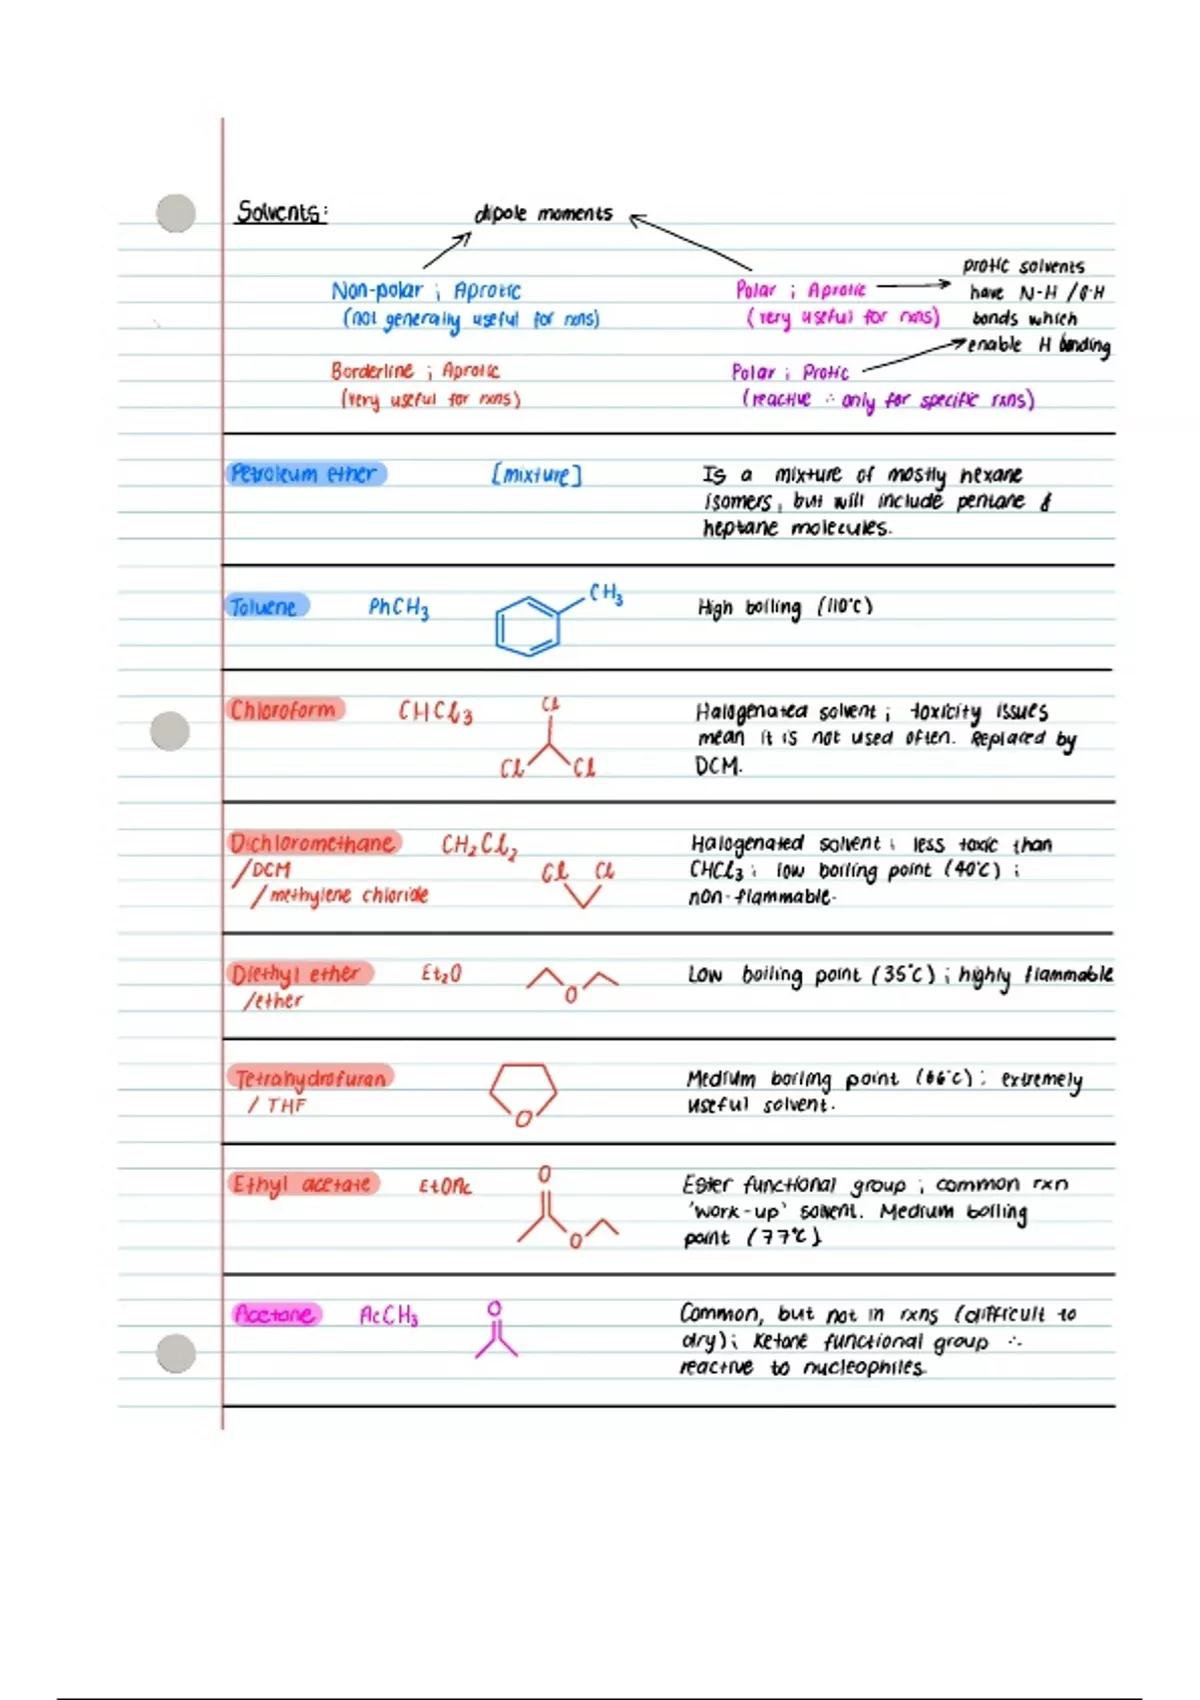 Solvents:
dipole moments
Non-polar ; Aprotic
(not generally useful for rxns)
Polar ; Aprotic
(very useful for rxns)
protic solvents
have N-H / O-H
bonds which
enable H bonding
Borderline ; Aprotic
(very useful for rxns)
Polar ; Protic
(reactive ∴ only for specific rxns)
Petroleum ether [mixture] Is a mixture of mostly hexane
isomers, but will include pentane &
heptane molecules.
Toluene PhCH3 CH3 High boiling (110°C)
Chloroform CHCl3 Cl Halogenated solvent ; toxicity issues
mean it is not used often. Replaced by
Cl Cl DCM.
Dichloromethane CH2Cl2 Halogenated solvent ; less toxic than
/DCM Cl Cl CHCl3 ; low boiling point (40°C) ;
/methylene chloride non-flammable.
Diethyl ether Et2O O Low boiling point (35°C) ; highly flammable
/ether
Tetrahydrofuran Medium boiling point (66°C) ; extremely
/ THF O useful solvent.
Ethyl acetate EtOAc O Ester functional group ; common rxn
'work-up' solvent. Medium boiling
O point (77°C)
Acetone AcCH3 O Common, but not in rxns (difficult to
dry) ; Ketone functional group ∴
reactive to nucleophiles.